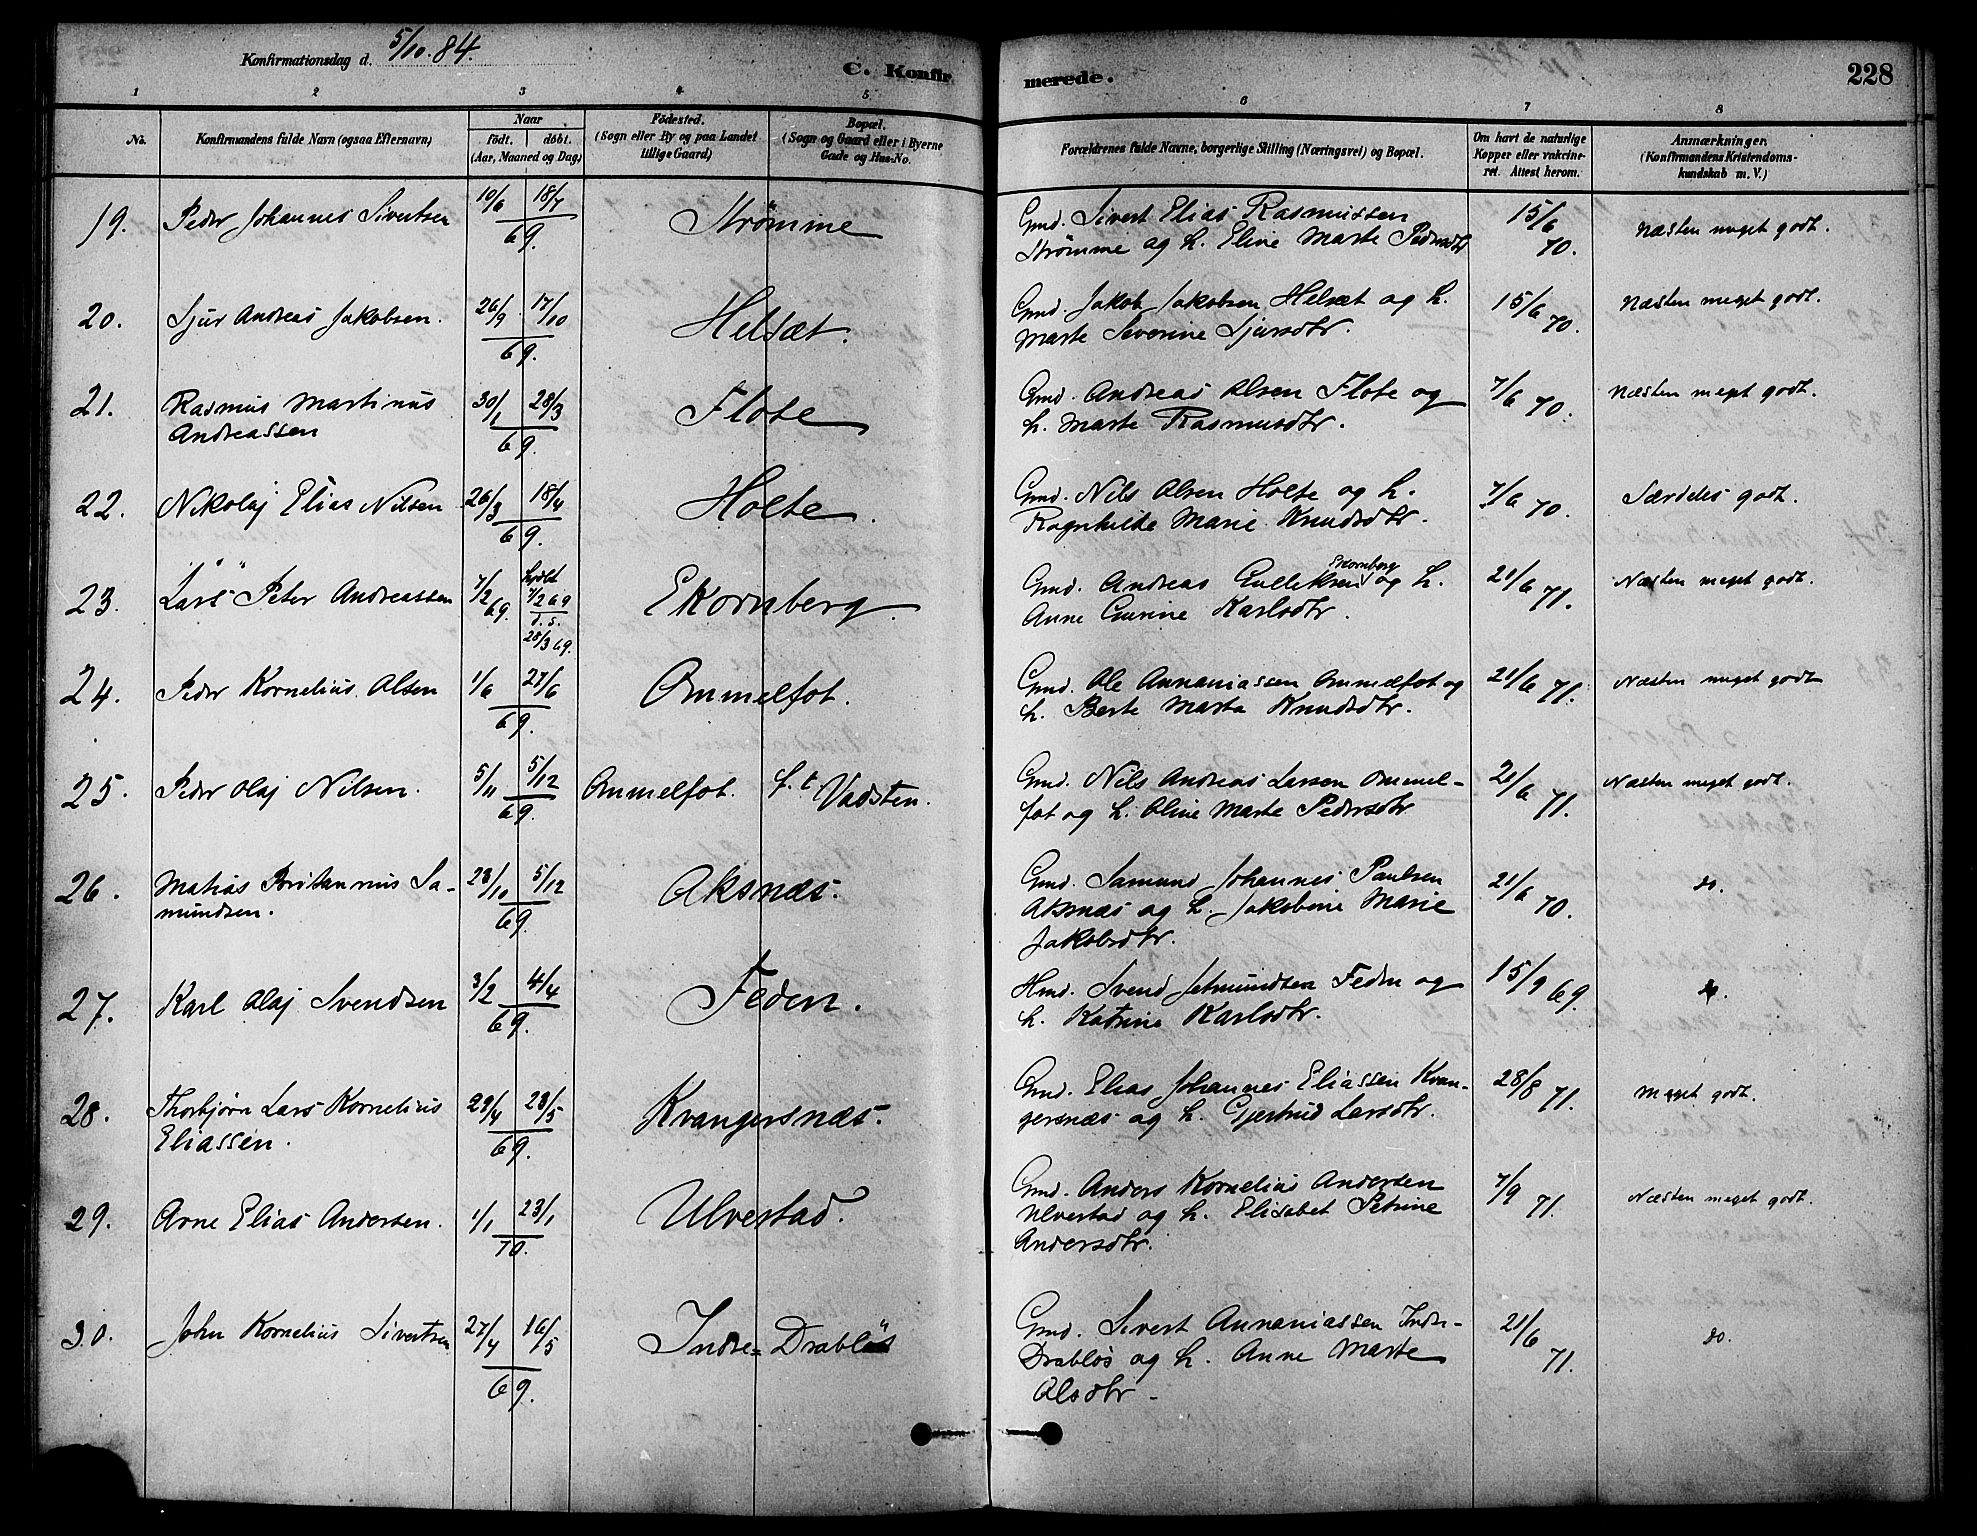 Konfirmationsdag d. 5/10.84.
C. Konfirmerede.
228
1 2 3 4 5 6 7 8
No.
Konfirmandens fulde Navn (ogsaa Efternavn)
Naar
födt. döbt.
(Aar, Maaned og Dag)
Födested.
(Sogn eller By og paa Landet
tillige Gaard)
Bopæl.
(Sogn og Gaard eller i Byerne
Gade og Hus-No.
Forældrenes fulde Navne, borgerlige Stilling (Næringsvei) og Bopæl.
Om havt de naturlige
Kopper eller vakcine-
ret. Attest herom.
Anmærkninger
(Konfirmandens Kristendoms-
kundskab m. V.)
19. Peder Johannes Sivertsen 10/6 18/7 69. Strømme
Gmd. Sivert Elias Rasmussen
Strømme og h. Eline Marte Pedersdtr
15/6 70. Næsten meget godt.
20. Sjur Andreas Jakobsen. 26/9 17/10 69. Helsæt.
Gmd. Jakob Jakobsen Helsæt og h.
Marte Severine Sjursdtr.
15/6 70. Næsten meget godt.
21. Rasmus Martinus
Andreassen 30/1 28/3 69. Flote
Gmd. Andreas Olsen Flote og
h. Marte Rasmusdtr.
7/6 70. Næsten meget godt.
22. Nikolaj Elias Nilsen 26/3 18/4 69. Holte.
Gmd. Nils Olsen Holte og h.
Ragnhilde Marie Knudsdtr.
7/6 70. Særdeles godt.
23. Lars Peter Andreassen 7/2 69. hjdbt 7/2 69 d. s. 28/3 69. Ekornberg
Gmd. Andreas Gulleksen Ekornberg og h.
Anne Gurine Karlsdtr.
21/6 71. Næsten meget godt.
24. Peder Kornelius Olsen 1/6 27/6 69. Ommelfot.
Gmd. Ole Annaniassen Ommelfot og
h. Berte Marta Knudsdtr.
21/6 71. Næsten meget godt
25. Peder Olaj Nilsen. 5/11 5/12 69. Ommelfot. f. t. Vadsten.
Gmd. Nils Andreas Larsen Ommel-
fot og h. Oline Marte Pedersdtr
21/6 71. Næsten meget godt.
26. Matias Britannus Sa-
mundsen. 23/10 5/12 69. Aksnæs.
Gmd. Samund Johannes Paulsen
Aksnæs og h. Jakobine Marie
Jakobsdtr.
21/6 70. do.
27. Karl Olaj Svendsen 3/2 4/4 69. Feden.
Hmd. Svend Jetmundsen Feden og
h. Katrine Karlsdtr.
15/9 69. do.
28. Thorbjørn Lars Kornelius
Eliassen. 29/4 23/5 69. Kvangersnæs.
Gmd. Elias Johannes Eliassen Kvan-
gersnæs og h. Gjertrud Larsdtr.
28/8 71. Meget godt.
29. Arne Elias Andersen. 1/1 23/1 70. Ulvestad.
Gmd. Anders Kornelius Andersen
Ulvestad og h. Elisabet Petrine
Andersdtr.
7/9 71. Næsten meget godt.
30. John Kornelius Sivertsen 27/4 16/5 69. Indre- Drabløs
Gmd. Sivert Annaniassen Indre-
Drabløs og h. Anne Marte
Olsdtr
21/6 71. do.